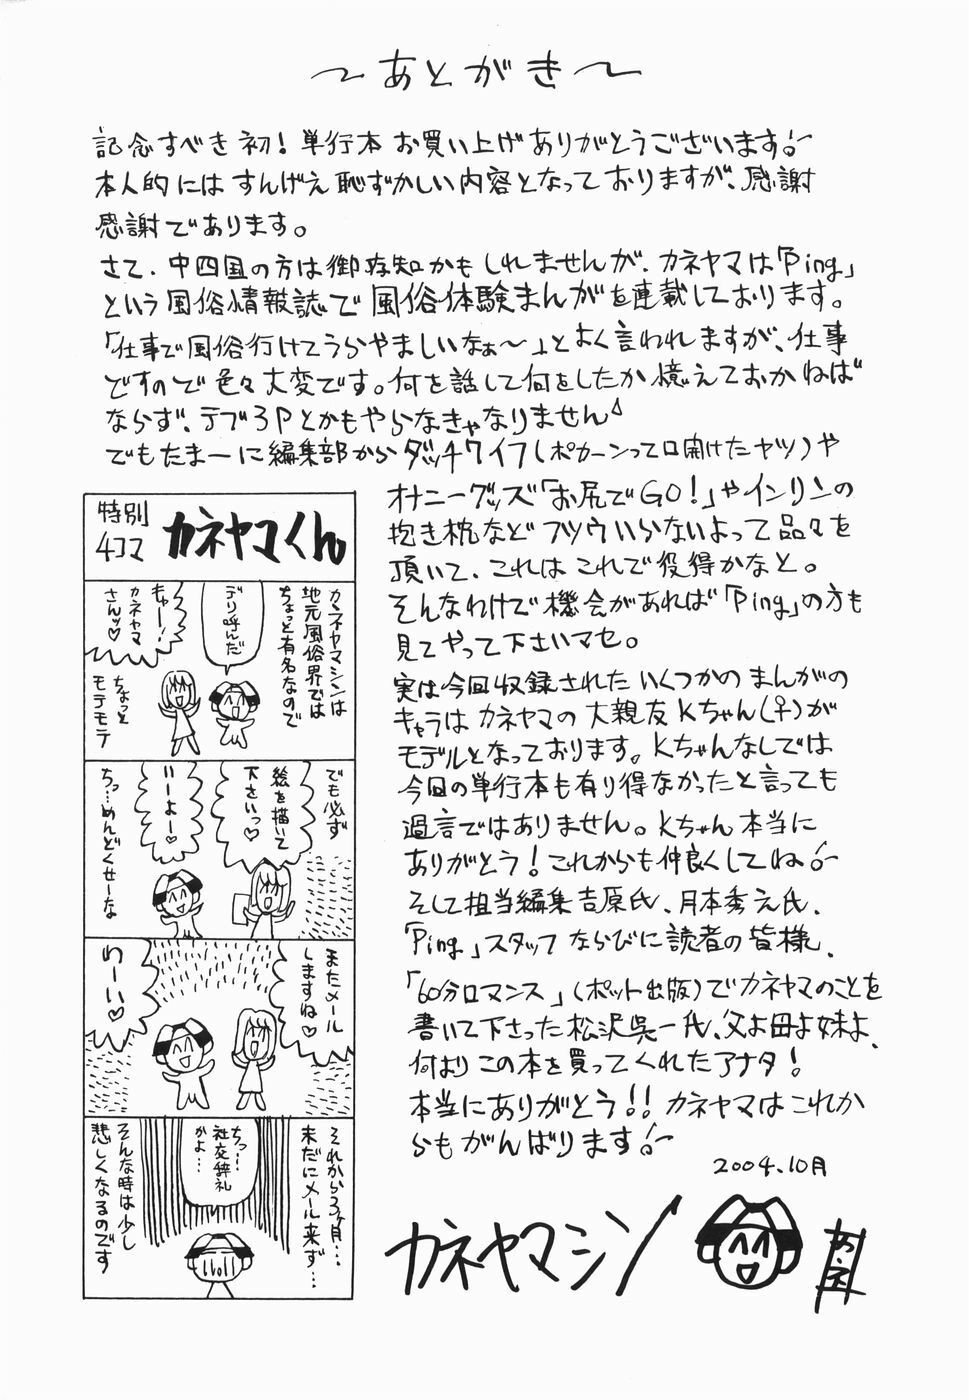 ～あとがき～
記念すべき初！単行本お買い上げありがとうございます！
本人的にはすんげえ恥ずかしい内容となっておりますが、感謝
感謝であります。
さて、中四国の方は御存知かもしれませんが、カネヤマは「Ping」
という風俗情報誌で風俗体験まんがを連載しております。
「仕事で風俗行けてうらやましいなぁ～」とよく言われますが、仕事
ですので色々大変です。何を話して何をしたか憶えておかねば
ならず、デブ3Pとかもやらなきゃなりません
でもたまーに編集部からダッチワイフ(ポカーンって口開けたヤツ)や
オナニーグッズ「お尻でGO！」やインリンの
抱き枕などフツウいらないよって品々を
頂いて、これはこれで役得かなと。
そんなわけで機会があれば「Ping」の方も
見てやって下さいマセ。
実は今回収録されたいくつかのまんがの
キャラはカネヤマの大親友Kちゃん(♀)が
モデルとなっております。Kちゃんなしでは
今回の単行本も有り得なかったと言っても
過言ではありません。Kちゃん本当に
ありがとう！これからも仲良くしてね！
そして担当編集吉原氏、月本秀之氏、
「Ping」スタッフならびに読者の皆様、
「60分ロマンス」(ポット出版)でカネヤマのことを
書いて下さった松沢呉一氏、父よ母よ妹よ、
何よりこの本を買ってくれたアナタ！
本当にありがとう！！カネヤマはこれか
らもがんばります！
2004.10月
カネヤマシン
特別
4コマ
カネヤマくん
カネヤマシンは
地元風俗界では
ちょっと有名なので
デリ呼んだ
きゃー！
カネヤマ
さんッ♡
ちょっと
モテモテ
でも必ず
絵を描いて
下さいっ♡
いーよー♡
ちっ…めんどくせーな
またメール
しますね♡
わーい♡
それから3ヶ月…
未だにメール来ず…
ちっ…
社交辞礼
かよ…
そんな時は少し
悲しくなるのです